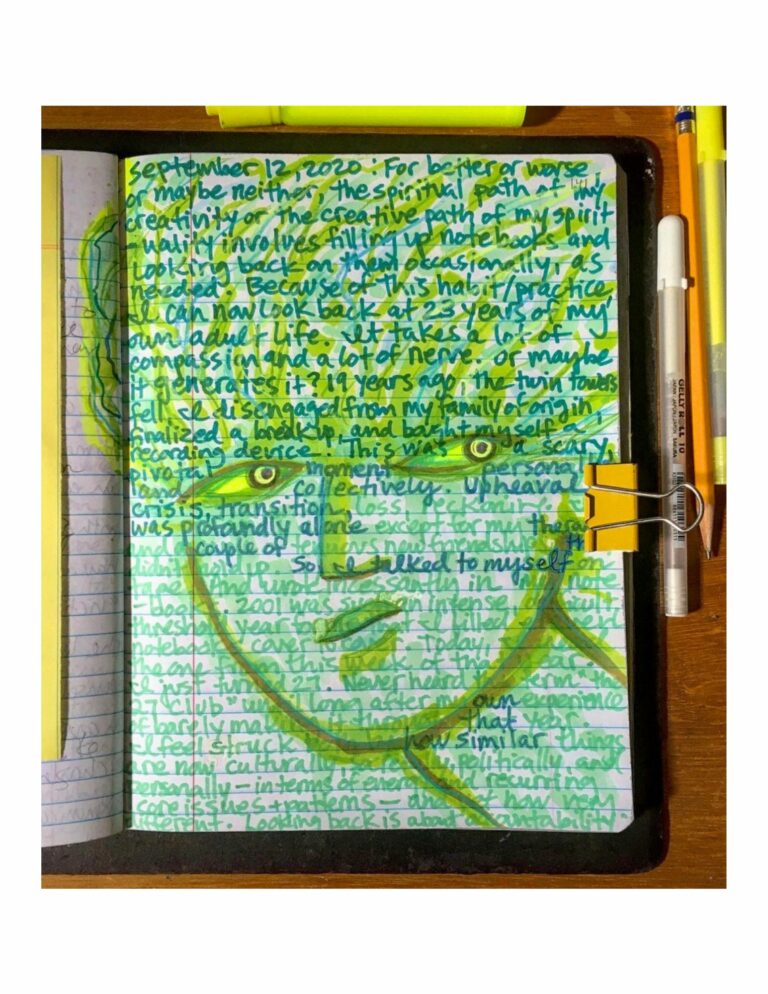 September 12, 2020. For better or worse,
or maybe neither, the spiritual path of my
creativity or the creative path of my spirit
-uality involves filling up notebooks and
looking back on them occasionally, as
needed. Because of this habit/practice
I can now look back at 23 years of my
own adult life. It takes a lot of
compassion and a lot of nerve. or maybe
it generates it? 19 years ago, the twin towers
fell. I disengaged from my family of origin,
finalized a breakup, and bought myself a
recording device. This was a scary,
pivotal moment personal
and collectively. Upheaval
crisis, transition, loss,
was profoundly alone except for my
and
couple of
So, I talked to myself on
incessantly in my note
-books. 2001 was intense,
year
notebook cover Today,
this week of that year
I just turned 27. Never heard the term "the
27 club" until long after my own experience
of barely making it through that year
I feel struck how similar things
are now culturally, politically, and
personally – in terms of and recurring
core issues + patterns – and how very
different. Looking back is about accountability.
GELLY ROLL 10